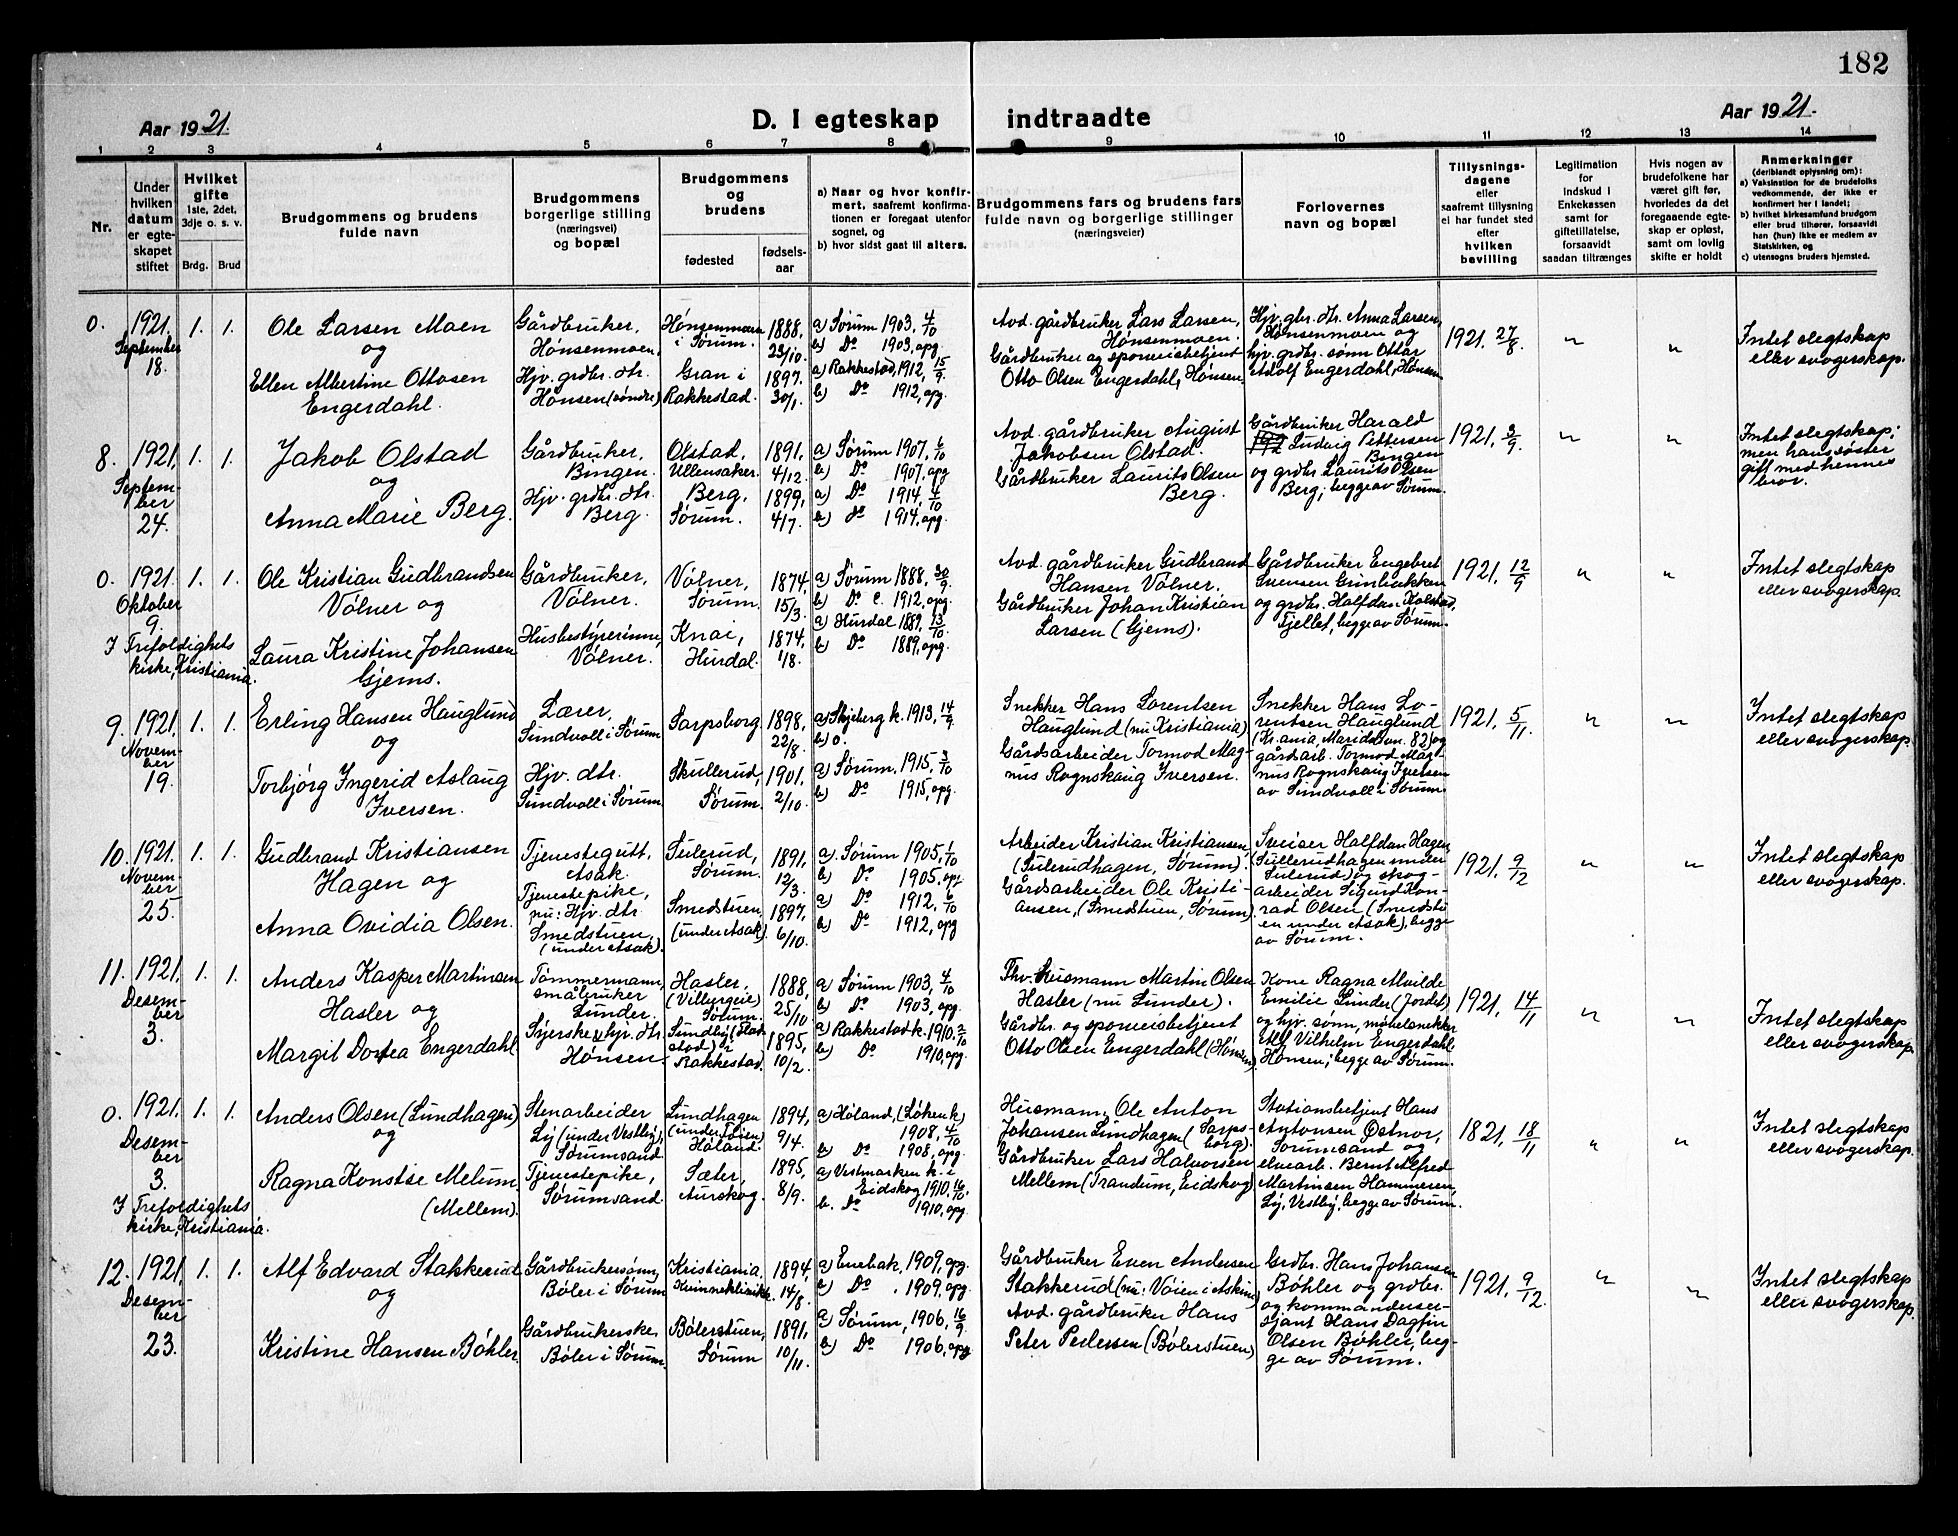 182
Aar 1921.
D. I egteskap indtraadte
Aar 1921.
1 2 3 4 5 6 7 8 9 10 11 12 13 14
Nr.
Under
hvilken
datum
er egte-
skapet
stiftet
Hvilket
gifte
1ste, 2det,
3dje o. s. v.
Brdg. Brud
Brudgommens og brudens
fulde navn
Brudgommens
borgerlige stilling
(næringsvei)
og bopæl
Brudgommens
og
brudens
fødested
fødsels-
aar
a) Naar og hvor konfir-
mert, saafremt konfirma-
tionen er foregaat utenfor
sognet, og
b) hvor sidst gaat til alters.
Brudgommens fars og brudens fars
fulde navn og borgerlige stillinger
(næringsveier)
Forlovernes
navn og bopæl
Tillysnings-
dagene
eller
saafremt tillysning
ei har fundet sted
efter
hvilken
bevilling
Legitimation
for
indskud i
Enkekassen
samt for
giftetillatelse,
forsaavidt
saadan tiltrænges
Hvis nogen av
brudefolkene har
været gift før,
hvorledes da det
foregaaende egte-
skap er opløst,
samt om lovlig
skifte er holdt
Anmerkninger
(deriblandt oplysning om):
a) Vaksination for de brudefolks
vedkommende, der ikke er
konfirmert her i landet;
b) hvilket kirkesamfund brudgom
eller brud tilhører, forsaavidt
han (hun) ikke er medlem av
Statskirken, og
c) utensogns bruders hjemsted.
0. 1921. September 18. 1. 1.
Ole Larsen Moen
og
Ellen Albertine Ottosen
Engerdahl.
Gårdbruker,
Hønsenmoen.
Hjv. grdbr. dtr.
Hønsen (søndre)
Hønsenmoen
i Sørum.
Gran i
Rakkestad.
1888,
23/10.
1897.
30/1.
a) Sørum 1903, 4/10
b) Do 1903, opg.
a) Rakkestad, 1912, 15/9.
b) Do 1912, opg.
Avd. gårdbruker Lars Larsen,
Hønsenmoen.
Gårdbruker og sporveisbetjent
Otto Olsen Engerdahl, Hønsen.
Hjv. gbr. dtr. Anna Larsen,
Hønsenmoen og
hjv. grdbr. sønn Ottar
Adolf Engerdahl, Hønsen
1921. 27/8.
" "
Intet slegtskap
eller svogerskap.
8. 1921, September 24. 1. 1.
Jakob Olstad
og
Anna Marie Berg.
Gårdbruker,
Bingen.
Hjv. grdbr. dtr.
Berg.
Olstad,
Ullensaker.
Berg,
Sørum.
1891,
4/12.
1899,
4/7.
a) Sørum 1907, 6/10
b) Do 1907, opg
a) Do 1914, 4/10
b) do 1914, opg.
Avd. gårdbruker August
Jakobsen Olstad.
Gårdbruker Laurits Olsen
Berg.
Gårdbruker Harald
Ludvig Pettersen
Bingen
og grdbr. Laurits Olsen
Berg; begge av Sørum.
1921, 3/9.
" "
Intet slegtskap;
men hans søster
gift med hennes
bror.
0. 1921. Oktober 9. 1. 1.
I Trefoldighets
kirke, Kristiania.
Ole Kristian Gudbrandsen
Vølner og
Laura Kristine Johansen
Gjems.
Gårdbruker,
Vølner.
Husbestyrerinne,
Vølner.
Vølner,
Sørum.
Knai,
Hurdal.
1874,
15/3.
1874,
1/8.
a) Sørum 1888, 30/9.
b) Do c. 1912, opg.
a) Hurdal 1889, 13/10
b) Do 1889, opg.
Avd. gårdbruker Gudbrand
Hansen Vølner.
Gårdbruker Johan Kristian
Larsen (Gjems).
Gårdbruker Engebret
Svensen Grinbakken
og grdbr. Halfdan Kolstad,
Fjellet, begge av Sørum.
1921, 12/9
" "
Intet slegtskap
eller svogerskap.
9. 1921. November 19. 1. 1.
Erling Hansen Hauglund
og
Torbjörg Ingerid Aslaug
Iversen.
Lærer,
Sundvoll i Sørum
Hjv. dtr.
Sundvoll i Sørum.
Sarpsborg
Skullerud,
Sørum.
1898,
22/8.
1901.
2/10.
a) Skjeberg k. 1913, 14/9.
b) 0.
a) Sørum, 1915, 3/10
b) Do 1915, opg.
Snekker Hans Lorentsen
Hauglund (nu Kristiania)
Gårdsarbeider Tormod Mag-
nus Rognskaug Iversen.
Snekker Hans Lo-
rentsen Hauglund
(Kr.ania, Maridalsvn. 82) og
gårdsarb. Tormod Mag-
nus Rognskaug Iversen
av Sundvoll i Sørum.
1921. 5/11.
" "
Intet slegtskap
eller svogerskap.
10. 1921. November 25. 1. 1.
Gudbrand Kristiansen
Hagen og
Anna Ovidia Olsen.
Tjenestegutt,
Asak.
Tjenestepike,
nu: Hjv. dtr.
Smedstuen,
(under Asak).
Sulerud,
Sørum.
Smedstuen,
(under Asak).
1891,
12/3.
1897.
6/10.
a). Sørum 1905, 1/10
b) Do 1905, opg
a) Do 1912, 6/10
b) Do 1912, opg
Arbeider Kristian Kristiansen,
(Sulerudhagen, Sørum).
Gårdsarbeider Ole Kristi-
ansen, (Smedstuen, Sørum).
Sveiser Halfdan Hagen,
(Sullerudhagen under
Sulerud) og skog-
arbeider Sigurd Kon-
rad Olsen (Smedstu-
en under Asak), begge
av Sørum.
1921, 9/12
" "
Intet slegtskap
eller svogerskap.
11. 1921. Desember 3. 1. 1.
Anders Kasper Martinsen
Hasler og
Margit Dortea Engerdahl
Tømmermann,
småbruker
Lunder.
Syerske, hjv. dtr.
Hønsen.
Hasler,
Sørum.
Sundby
Rakkestad.
1888,
25/10
1895,
10/2.
a) Sørum 1903, 4/10
b) Do 1903, opg.
a) Rakkestad k. 1910. 2/10
b) Do 1910, opg.
Fhv. Husmann Martin Olsen
Hasler (nu Lunder).
Gårdbr. og sporveisbetjent
Otto Olsen Engerdahl (Hønsen)
Kone Ragna Alvilde
Emilie Lunder (Jordet)
og hjv. sønn, møbelsnekker
Alf Vilhelm Engerdahl
Hønsen; begge av Sørum.
1921, 14/11
" "
Intet slegtskap
eller svogerskap.
0. 1921. Desember 3. 1. 1.
I Trefoldighets
kirke, Kristiania.
Anders Olsen (Lundhagen)
og
Ragna Konstse Melum
(Mellem).
Stenarbeider
Ly (under Vestby),
Sørumsand
Tjenestepike,
Sørumsand.
Lundhagen
Høland.
Sæter,
Aurskog.
1894,
9/4.
1895,
8/9.
a) Høland, (Løken k)
1908, 4/10
b) Do 1908, opg.
a) Vestmarken k. i
Eidskog 1910, 16/10,
b. Do 1910, opg.
Husmann, Ole Anton
Johansen Lundhagen (Sarps-
borg).
Gårdbruker Lars Halvorsen
Mellem (Trandum, Eidskog)
Stationsbetjent Hans
Antonsen Østnor,
Sørumsand og
elvearb. Bernt Alfred
Martinsen Hammeren,
Ly, Vestby, begge av Sørum.
1821, 18/11
" "
Intet slegtskap
eller svogerskap.
12. 1921, Desember 23. 1. 1.
Alf Edvard Stakkerud
og
Kristine Hansen Bøhler
Gårdbrukersønn,
Bøler i Sørum
Gårdbrukerske,
Bøler i Sørum.
Kristiania,
Kvinneklinikk.
Bølerstuen,
Sørum
1894,
14/8.
1891,
10/11.
a) Enebak, 1909, opg.
a) Do . 1909, opg.
a) Sørum, 1906, 16/9.
b) Do 1906, opg
Gårdbruker Even Andersen
Stakkerud (nu: Voien i Askim)
Avd. gårdbruker Hans
Peter Pedersen (Bølerstuen)
Grdbr. Hans Johansen
Bøhler og grdbr.
og kommandérser-
sjant Hans Dagfin
Olsen Bøhler, beg-
ge av Sørum.
1921, 9/12.
" "
Intet slegtskap
eller svogerskap.